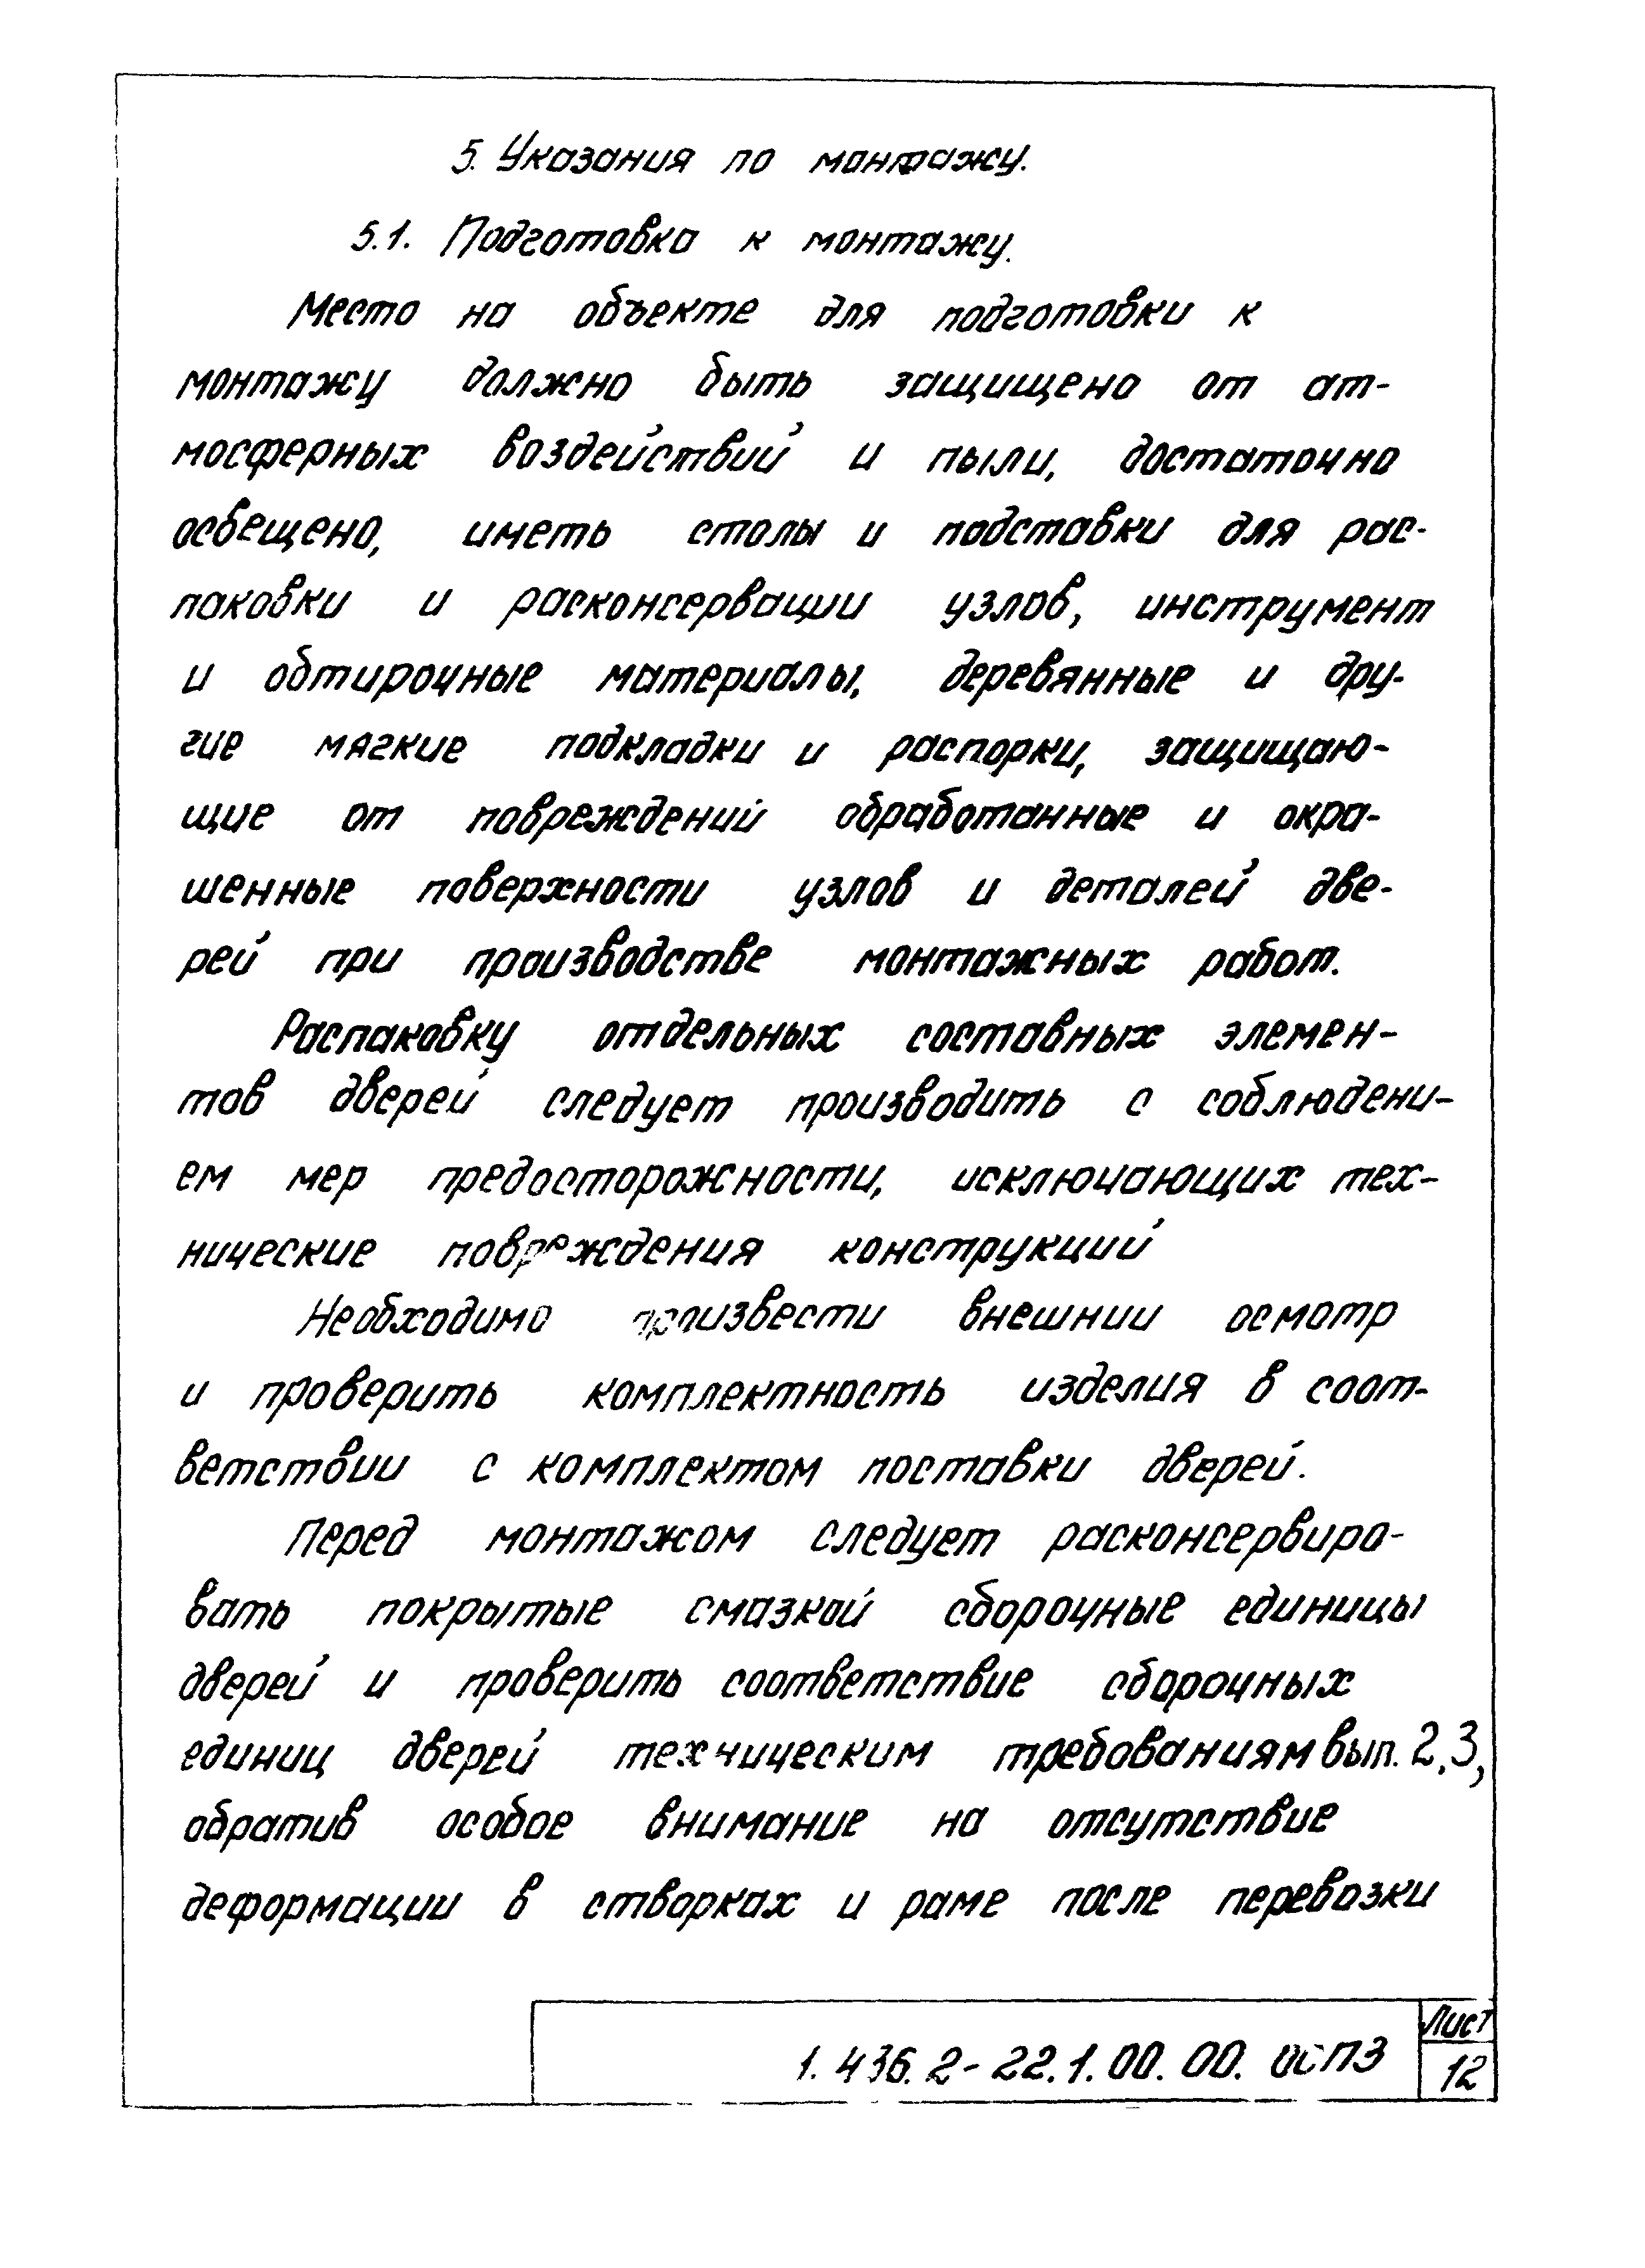 5. Указания по монтажу.
5.1. Подготовка к монтажу.
Место на объекте для подготовки к
монтажу должно быть защищено от ат-
мосферных воздействий и пыли, достаточно
освещено, иметь столы и подставки для рас-
паковки и расконсервации узлов, инструмент
и обтирочные материалы, деревянные и дру-
гие мягкие подкладки и распорки, защищаю-
щие от повреждений обработанные и окра-
шенные поверхности узлов и деталей две-
рей при производстве монтажных работ.
Распаковку отдельных составных элемен-
тов дверей следует производить с соблюдени-
ем мер предосторожности, исключающих тех-
нические повреждения конструкций
Необходимо произвести внешнии осмотр
и проверить комплектность изделия в соот-
ветствии с комплектом поставки дверей.
Перед монтажом следует расконсервиро-
вать покрытые смазкой сборочные единицы
дверей и проверить соответствие сборочных
единиц дверей техническим требованиям вып. 2,3,
обратив особое внимание на отсутствие
деформации в створках и раме после перевозки
1.436.2-22.1.00.00.00ПЗ
Лист
12